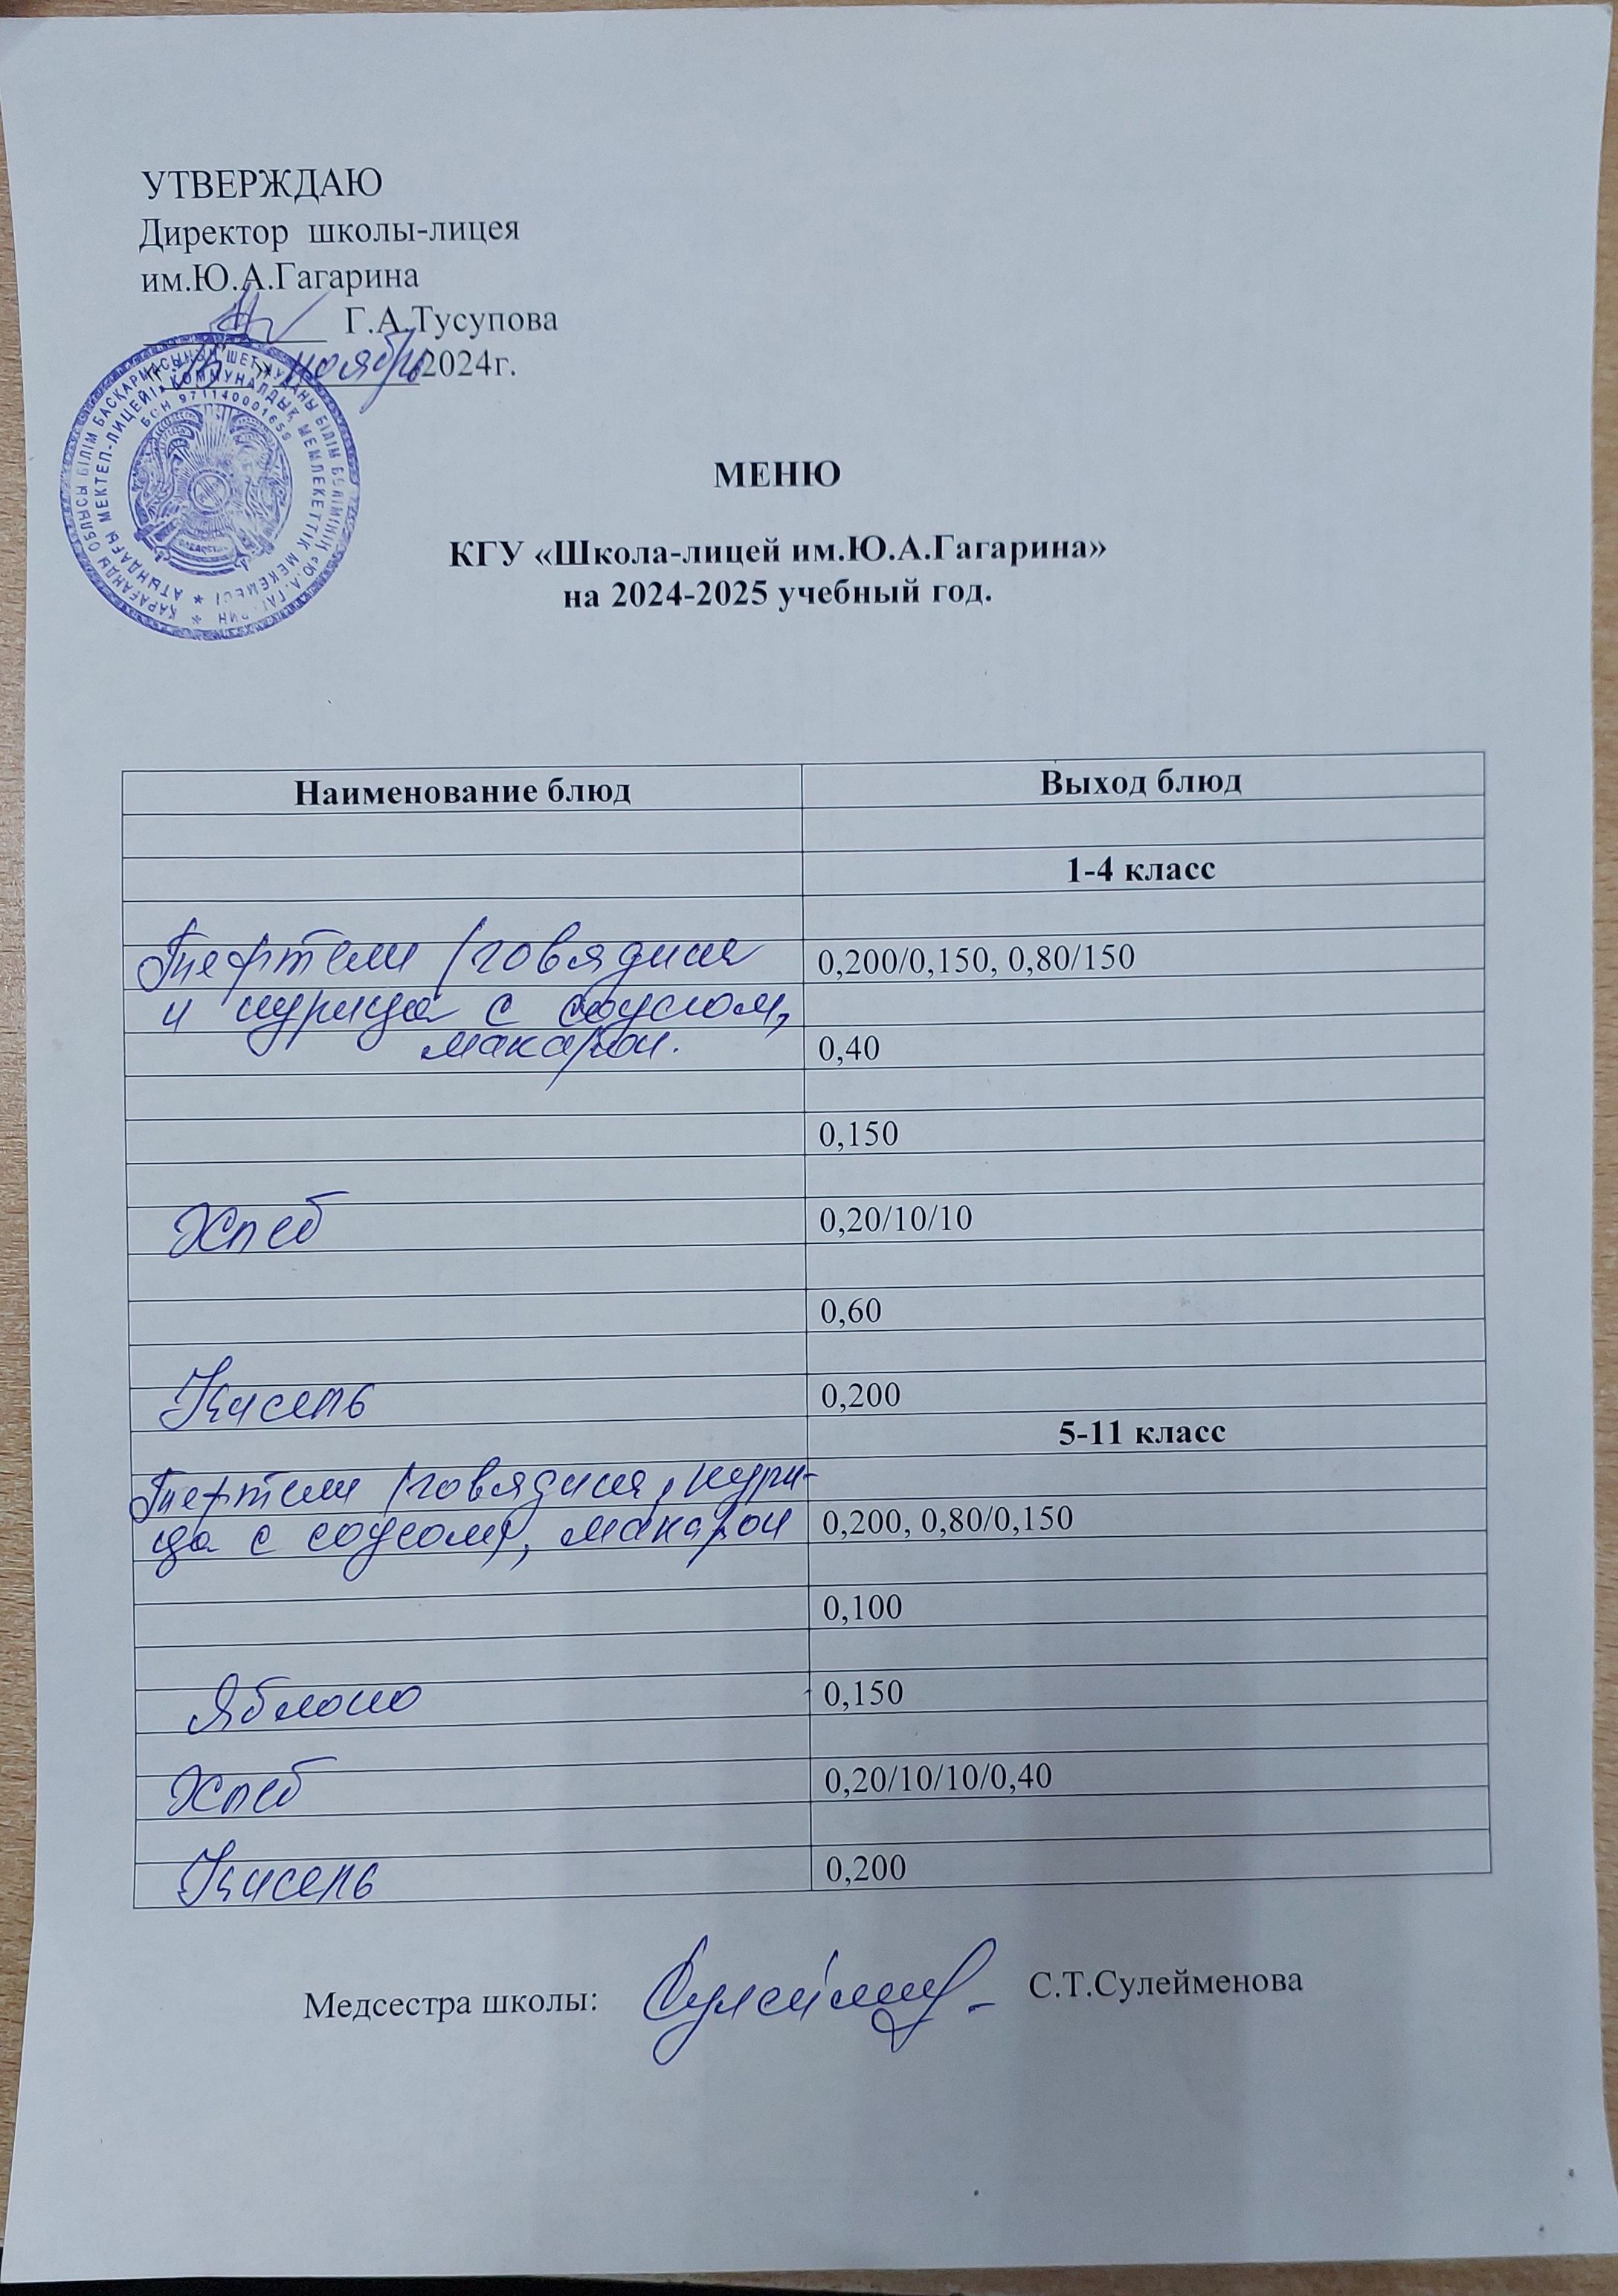 УТВЕРЖДАЮ
Директор школы-лицея
им.Ю.А.Гагарина
Г.А.Тусупова
ноябрь 2024г.
ҚАРАҒАНДЫ ОБЛЫСЫ БІЛІМ БАСҚАРМАСЫНЫҢ ШЕТ АУДАНЫ БІЛІМ БӨЛІМІНІҢ «Ю.А. ГАГАРИН
АТЫНДАҒЫ МЕКТЕП-ЛИЦЕЙІ» КОММУНАЛДЫҚ МЕМЛЕКЕТТІК МЕКЕМЕСІ
БСН 971140001659
МЕНЮ
КГУ «Школа-лицей им.Ю.А.Гагарина»
на 2024-2025 учебный год.
Наименование блюд Выход блюд
1-4 класс
Тефтели (говядина 0,200/0,150, 0,80/150
и курица с соусом,
макарон. 0,40
0,150
Хлеб 0,20/10/10
0,60
Кисель 0,200
5-11 класс
Тефтели (говядина, кури-
ца с соусом), макарон 0,200, 0,80/0,150
0,100
Яблоко 0,150
Хлеб 0,20/10/10/0,40
Кисель 0,200
Медсестра школы: С.Т.Сулейменова